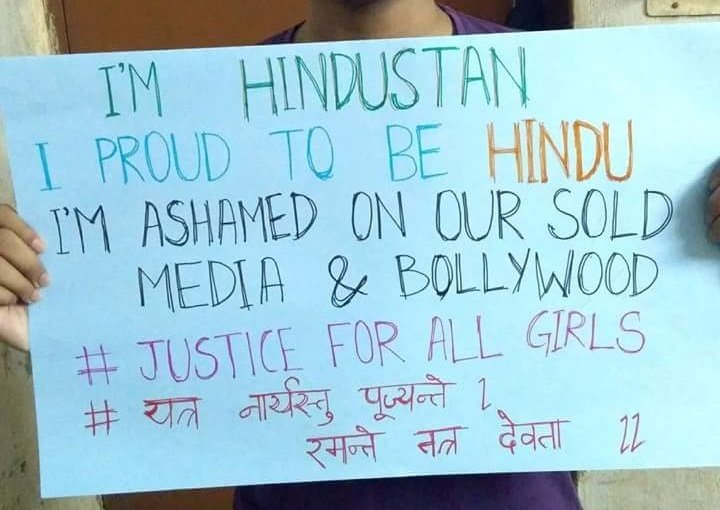 I'M HINDUSTAN
I PROUD TO BE HINDU
I'M ASHAMED ON OUR SOLD
MEDIA & BOLLYWOOD
# JUSTICE FOR ALL GIRLS
# यत्र नार्यस्तु पूज्यन्ते ।
रमन्ते तत्र देवता ॥